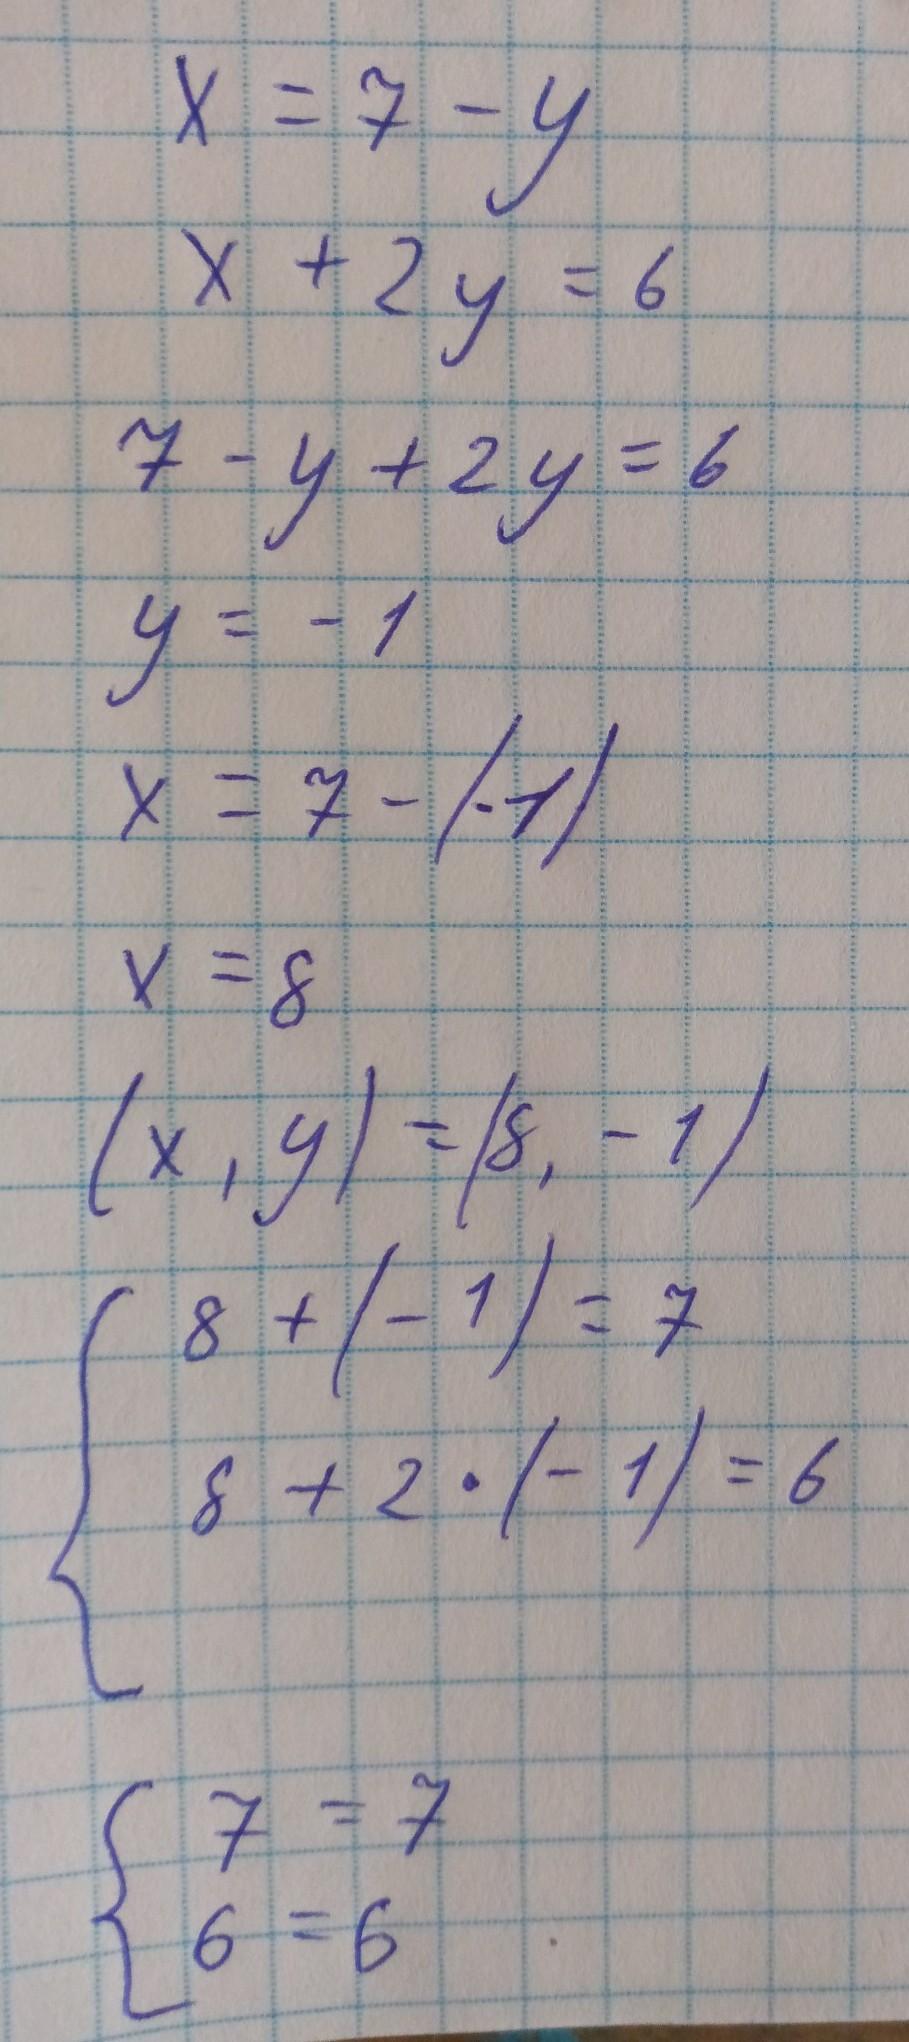 x = 7 - y
x + 2y = 6
7 - y + 2y = 6
y = -1
x = 7 - (-1)
x = 8
(x, y) = (8, -1)
8 + (-1) = 7
8 + 2 · (-1) = 6
7 = 7
6 = 6